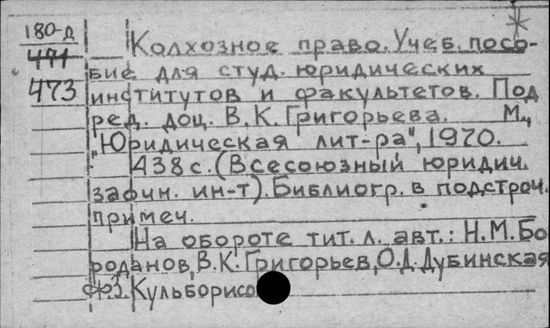 180-Д
471
473
Колхозное право. Учеб. посо-
бие для студ. юридических
институтов и факультетов. Под
ред. доц. В.К. Григорьева. М.,
"Юридическая лит-ра", 1970.
438 с. (Всесоюзный юридич.
заочн. ин-т). Библиогр. в подстроч.
примеч.
На обороте тит. л. авт.: Н.М. Бо-
роданов, В.К. Григорьев, О.Д. Дубинская
Ф.З. Кульборисо